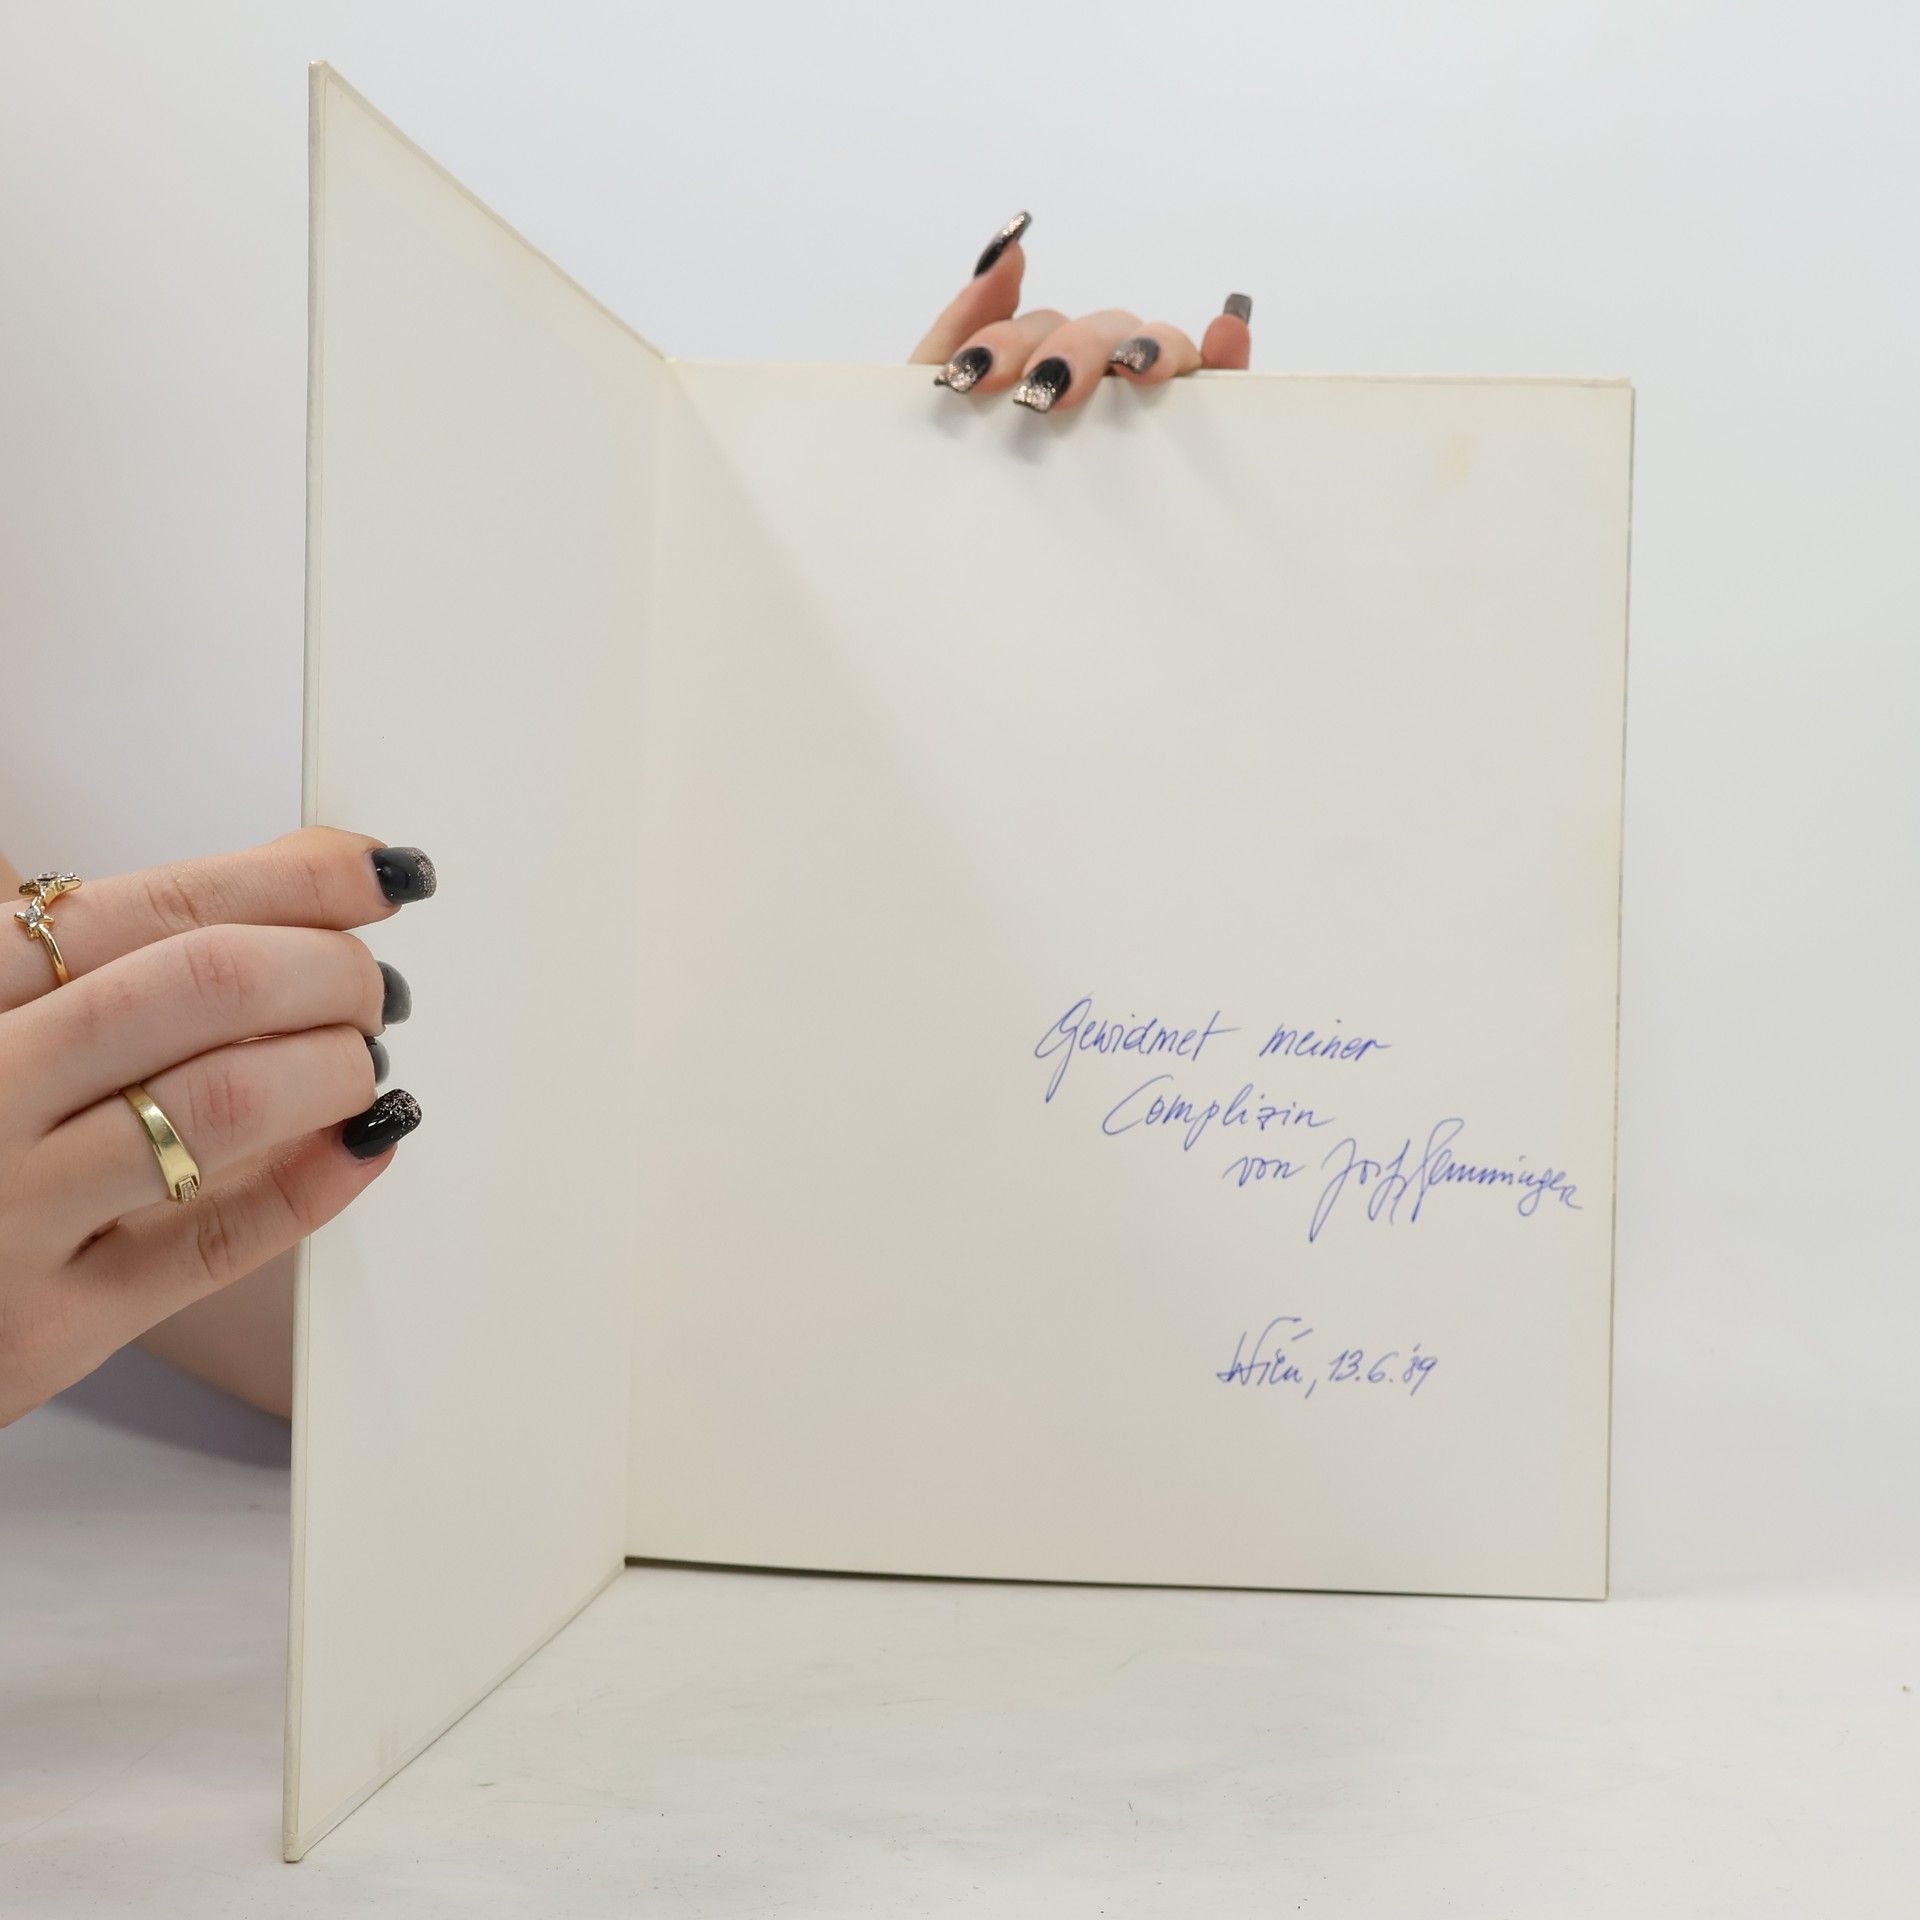 Gewidmet meiner
Complizin
von
Wien, 13.6.'89